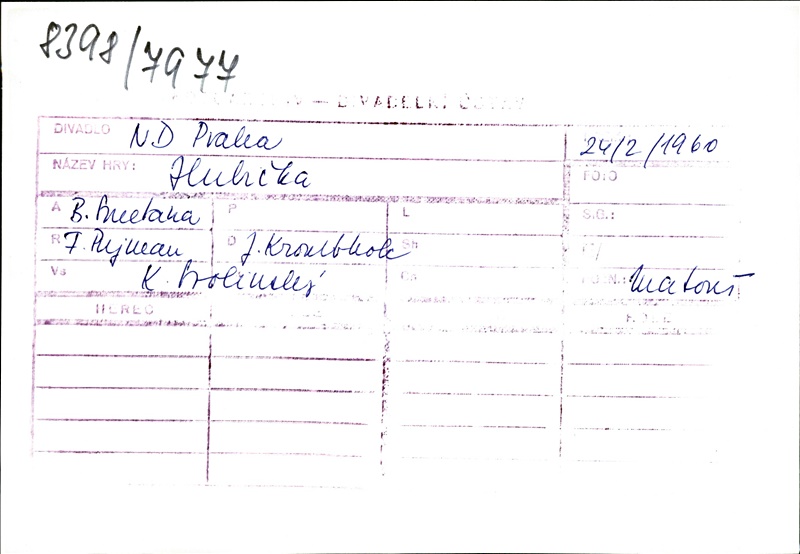 8398/7977
DIVADELNÍ
DIVADLO ND Praha 24/2/1960
NÁZEV HRY: Hubička FOTO
A B. Smetana P L S.G.:
R F. Pujman D J. Krombholc Sh
Vs K. Svolinský Ch Matouš
HEREC